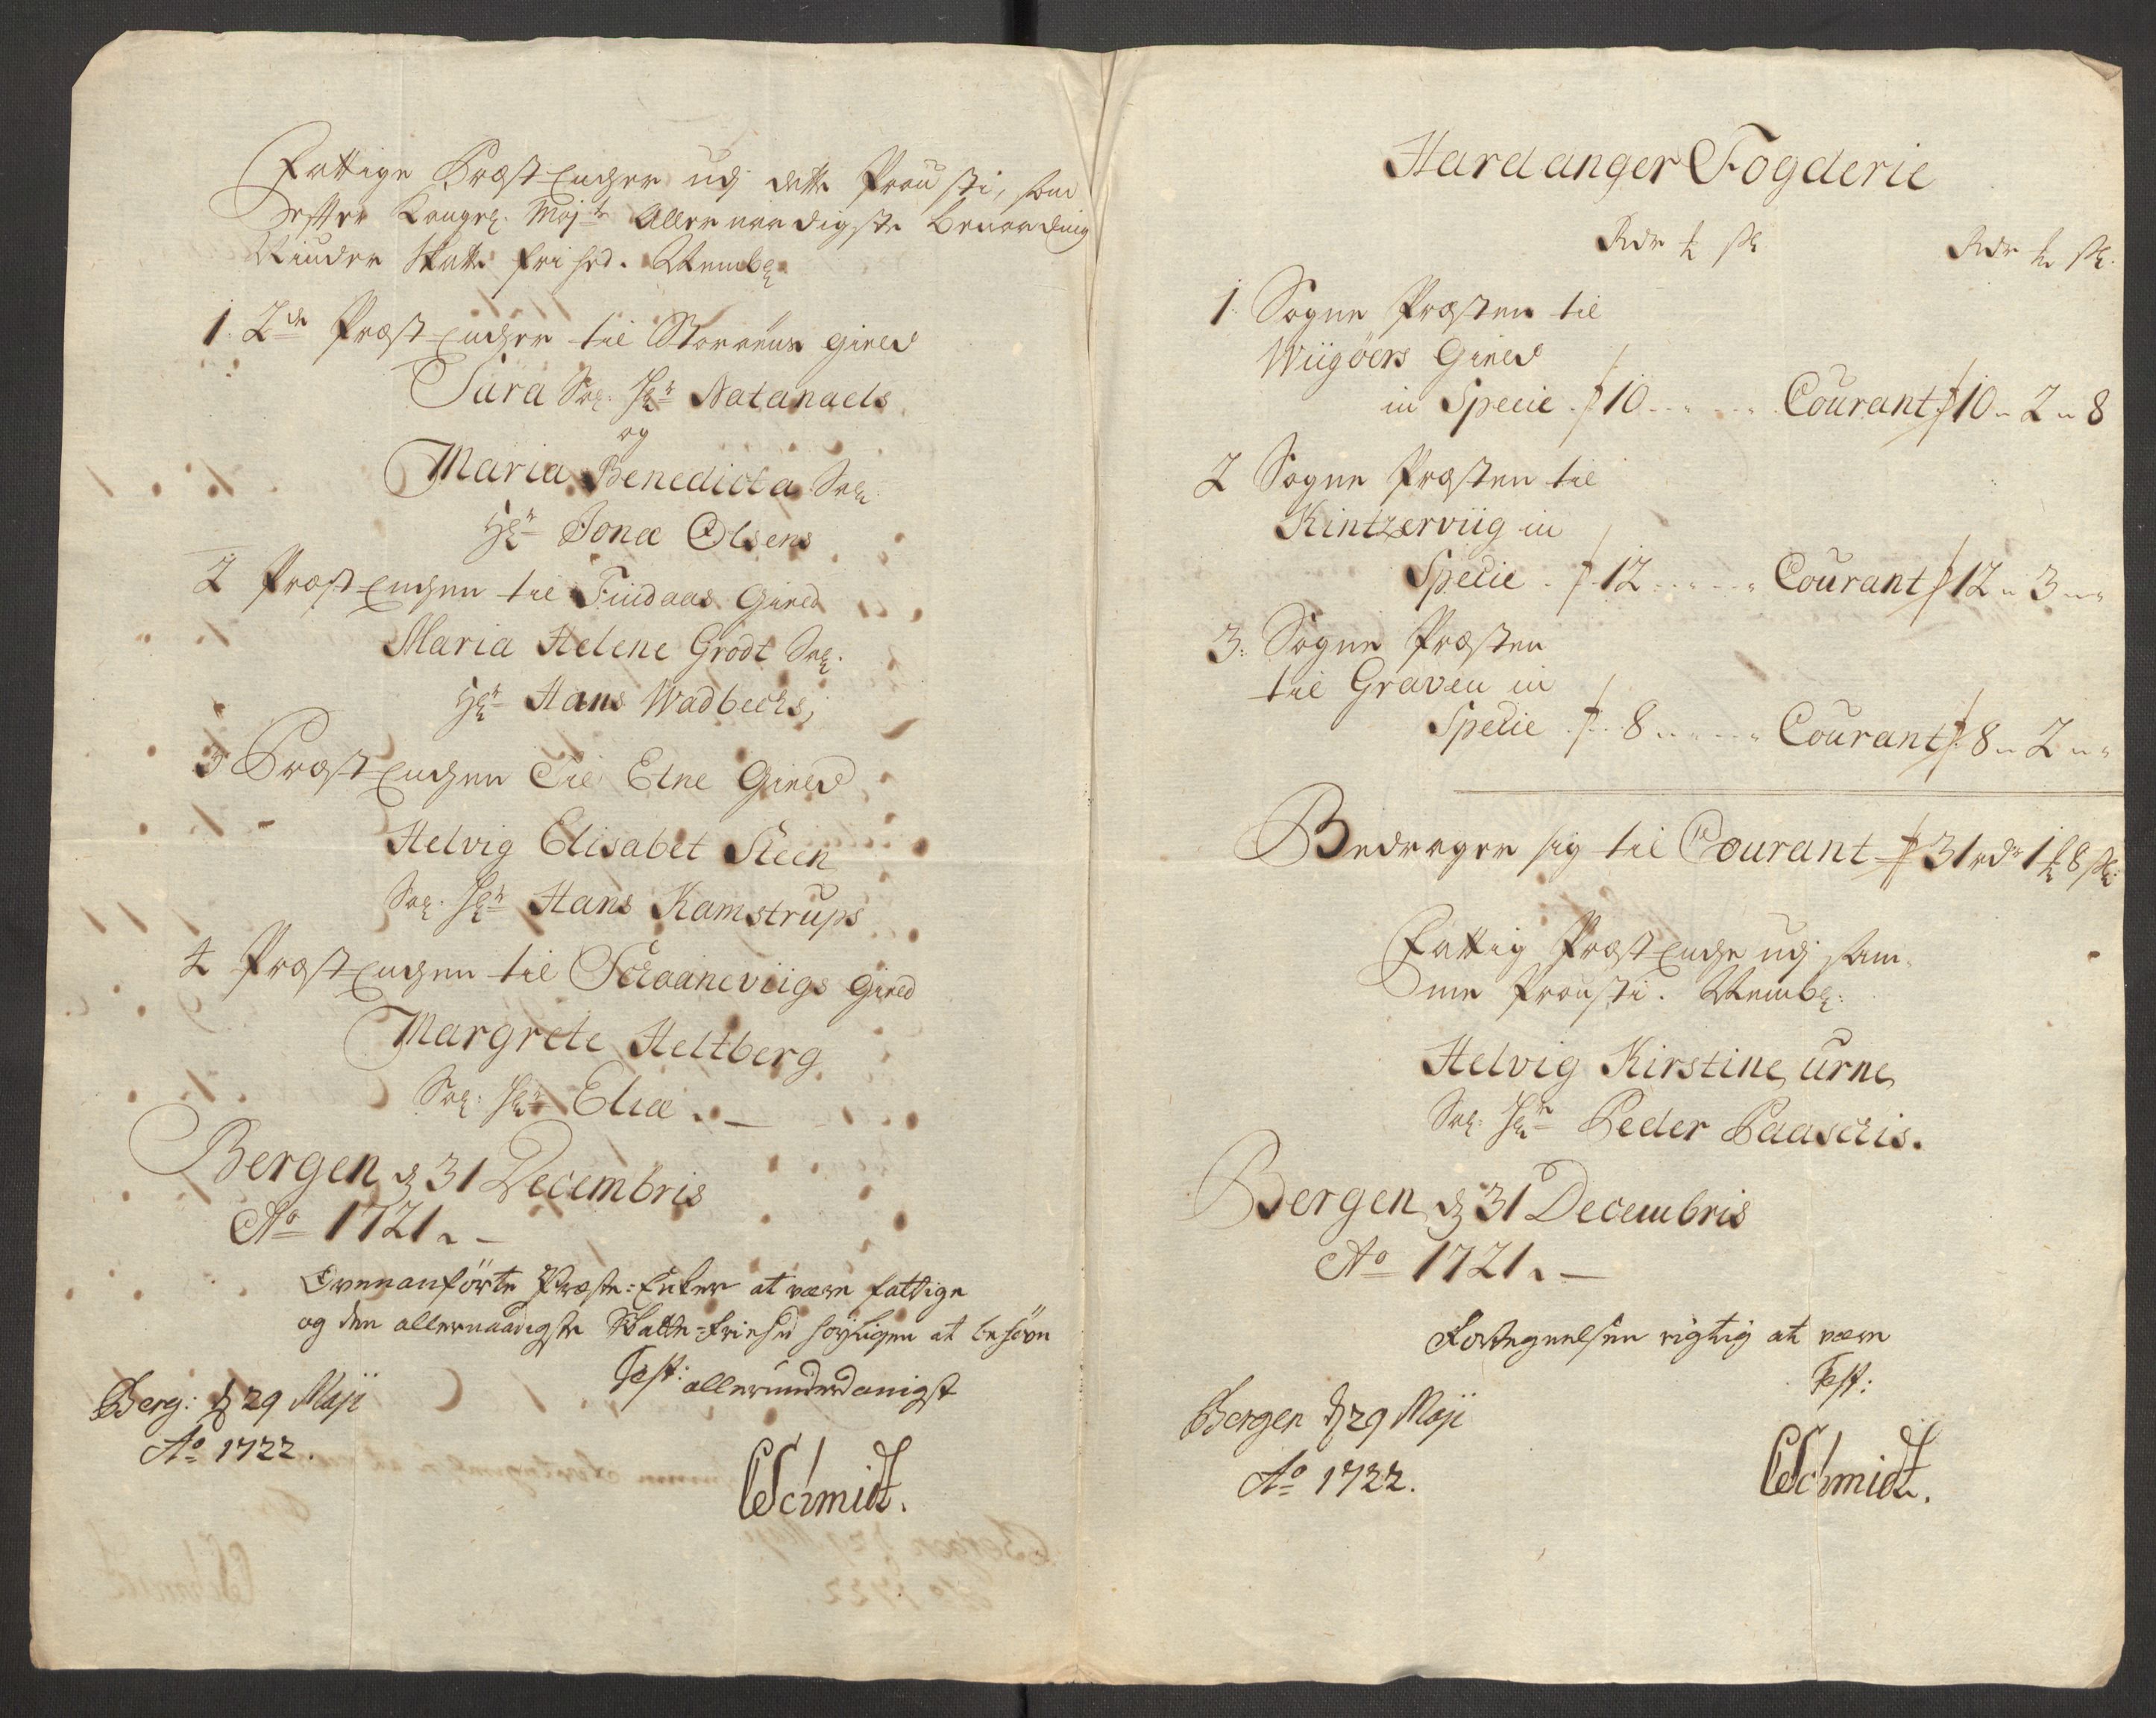 Fattige Præst Encher udj dette Prousti, som
efter Kongel. Maj.ts Allernaadigste benaadning
Niuder Skatte frihed. Nembl.
1. 2de Præst Encher til Storöens Gield
Sara Sal: Hr Natanaels
og
Maria Benedicta Sal.
Hr Jonæ Olsens
2 Præst Enchen til Findaas Gield
Maria Helene Grodt Sal.
Hr Hans Wadbechs,
3 Præst Enchen Til Etne Gield
Helvig Elisabet Steen
Sal. Hr Hans Kamstrups
4 Præst Enchen til Schaaneviigs Gield
Margrete Heltberg
Sal: Hr Eliæ.
Bergen d 31 Decembris
Ao 1721.
Ovenanförte Præste-Enker at være fattige
og den allernaadigste Skatte-friehed höyligen at behöve
Test: allerunderdanigst
Berg: d 29 Maji
Ao 1722.
CSchmidt.
Hardanger Fogderie
Rdr ℔ sk.
Rdr ℔ sk.
1. Sogne Præsten til
Wiigöers Gield
in Specie 10 - - Courant 10 - 2 - 8
2 Sogne Præsten til
Kintzerviig in
Specie 12 - - Courant 12 - 3 -
3. Sogne Præsten
til Graven in
Specie 8 - - Courant 8 - 2 -
Bedrager sig til Courant 31 rdr 1 ℔ 8 sk:
Fattig Præst Enche udj sam-
me Prousti. Nembl:
Helvig Kirstine Urne
Sal: Hr Peder Paaschis.
Bergen d 31 Decembris
Ao 1721.
Fortegnelsen rigtig at være
Test:
Bergen d 29 Maji
Ao 1722.
CSchmidt.